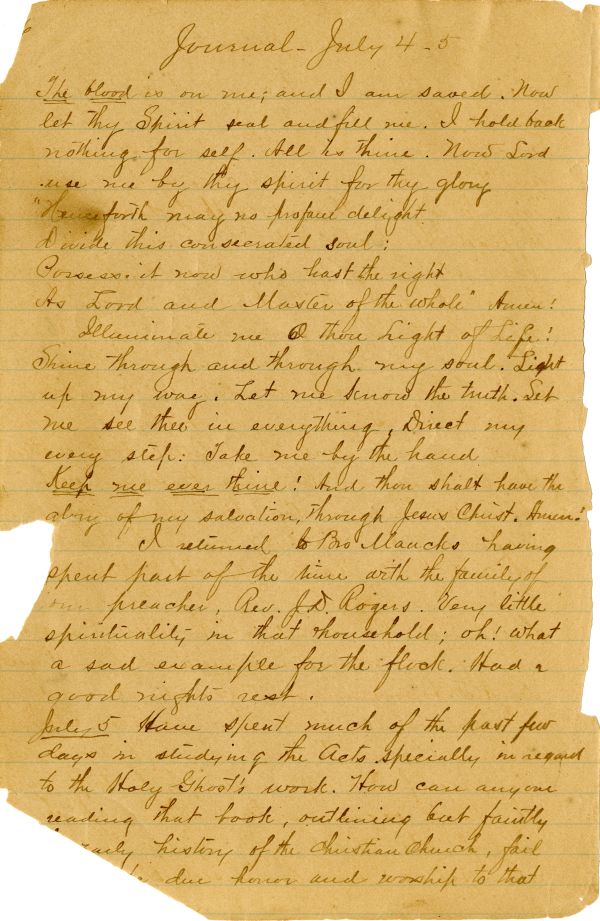 Journal - July 4 - 5
The blood is on me; and I am saved. Now
let thy Spirit seal and fill me. I hold back
nothing for self. All is thine. Now Lord
use me by thy spirit for thy glory
"Henceforth may no profane delight
Divide this consecrated soul;
Possess it now who hast the right
As Lord and Master of the whole" Amen!
Illuminate me O thou Light of Life!
Shine through and through my soul. Light
up my way. Let me know the truth. Let
me see thee in everything, Direct my
every step: Take me by the hand
Keep me ever thine! And thou shalt have the
glory of my salvation, through Jesus Christ. Amen!
I returned to Bro Maucks having
spent part of the time with the family of
our preacher, Rev. J.D. Rogers. Very little
spirituality in that household; oh! what
a sad example for the flock. Had a
good night's rest.
July 5 Have spent much of the past few
days in studying the Acts specially in regard
to the Holy Ghost's work. How can anyone
reading that book, outlining but faintly
early history of the Christian Church, fail
due honor and worship to that